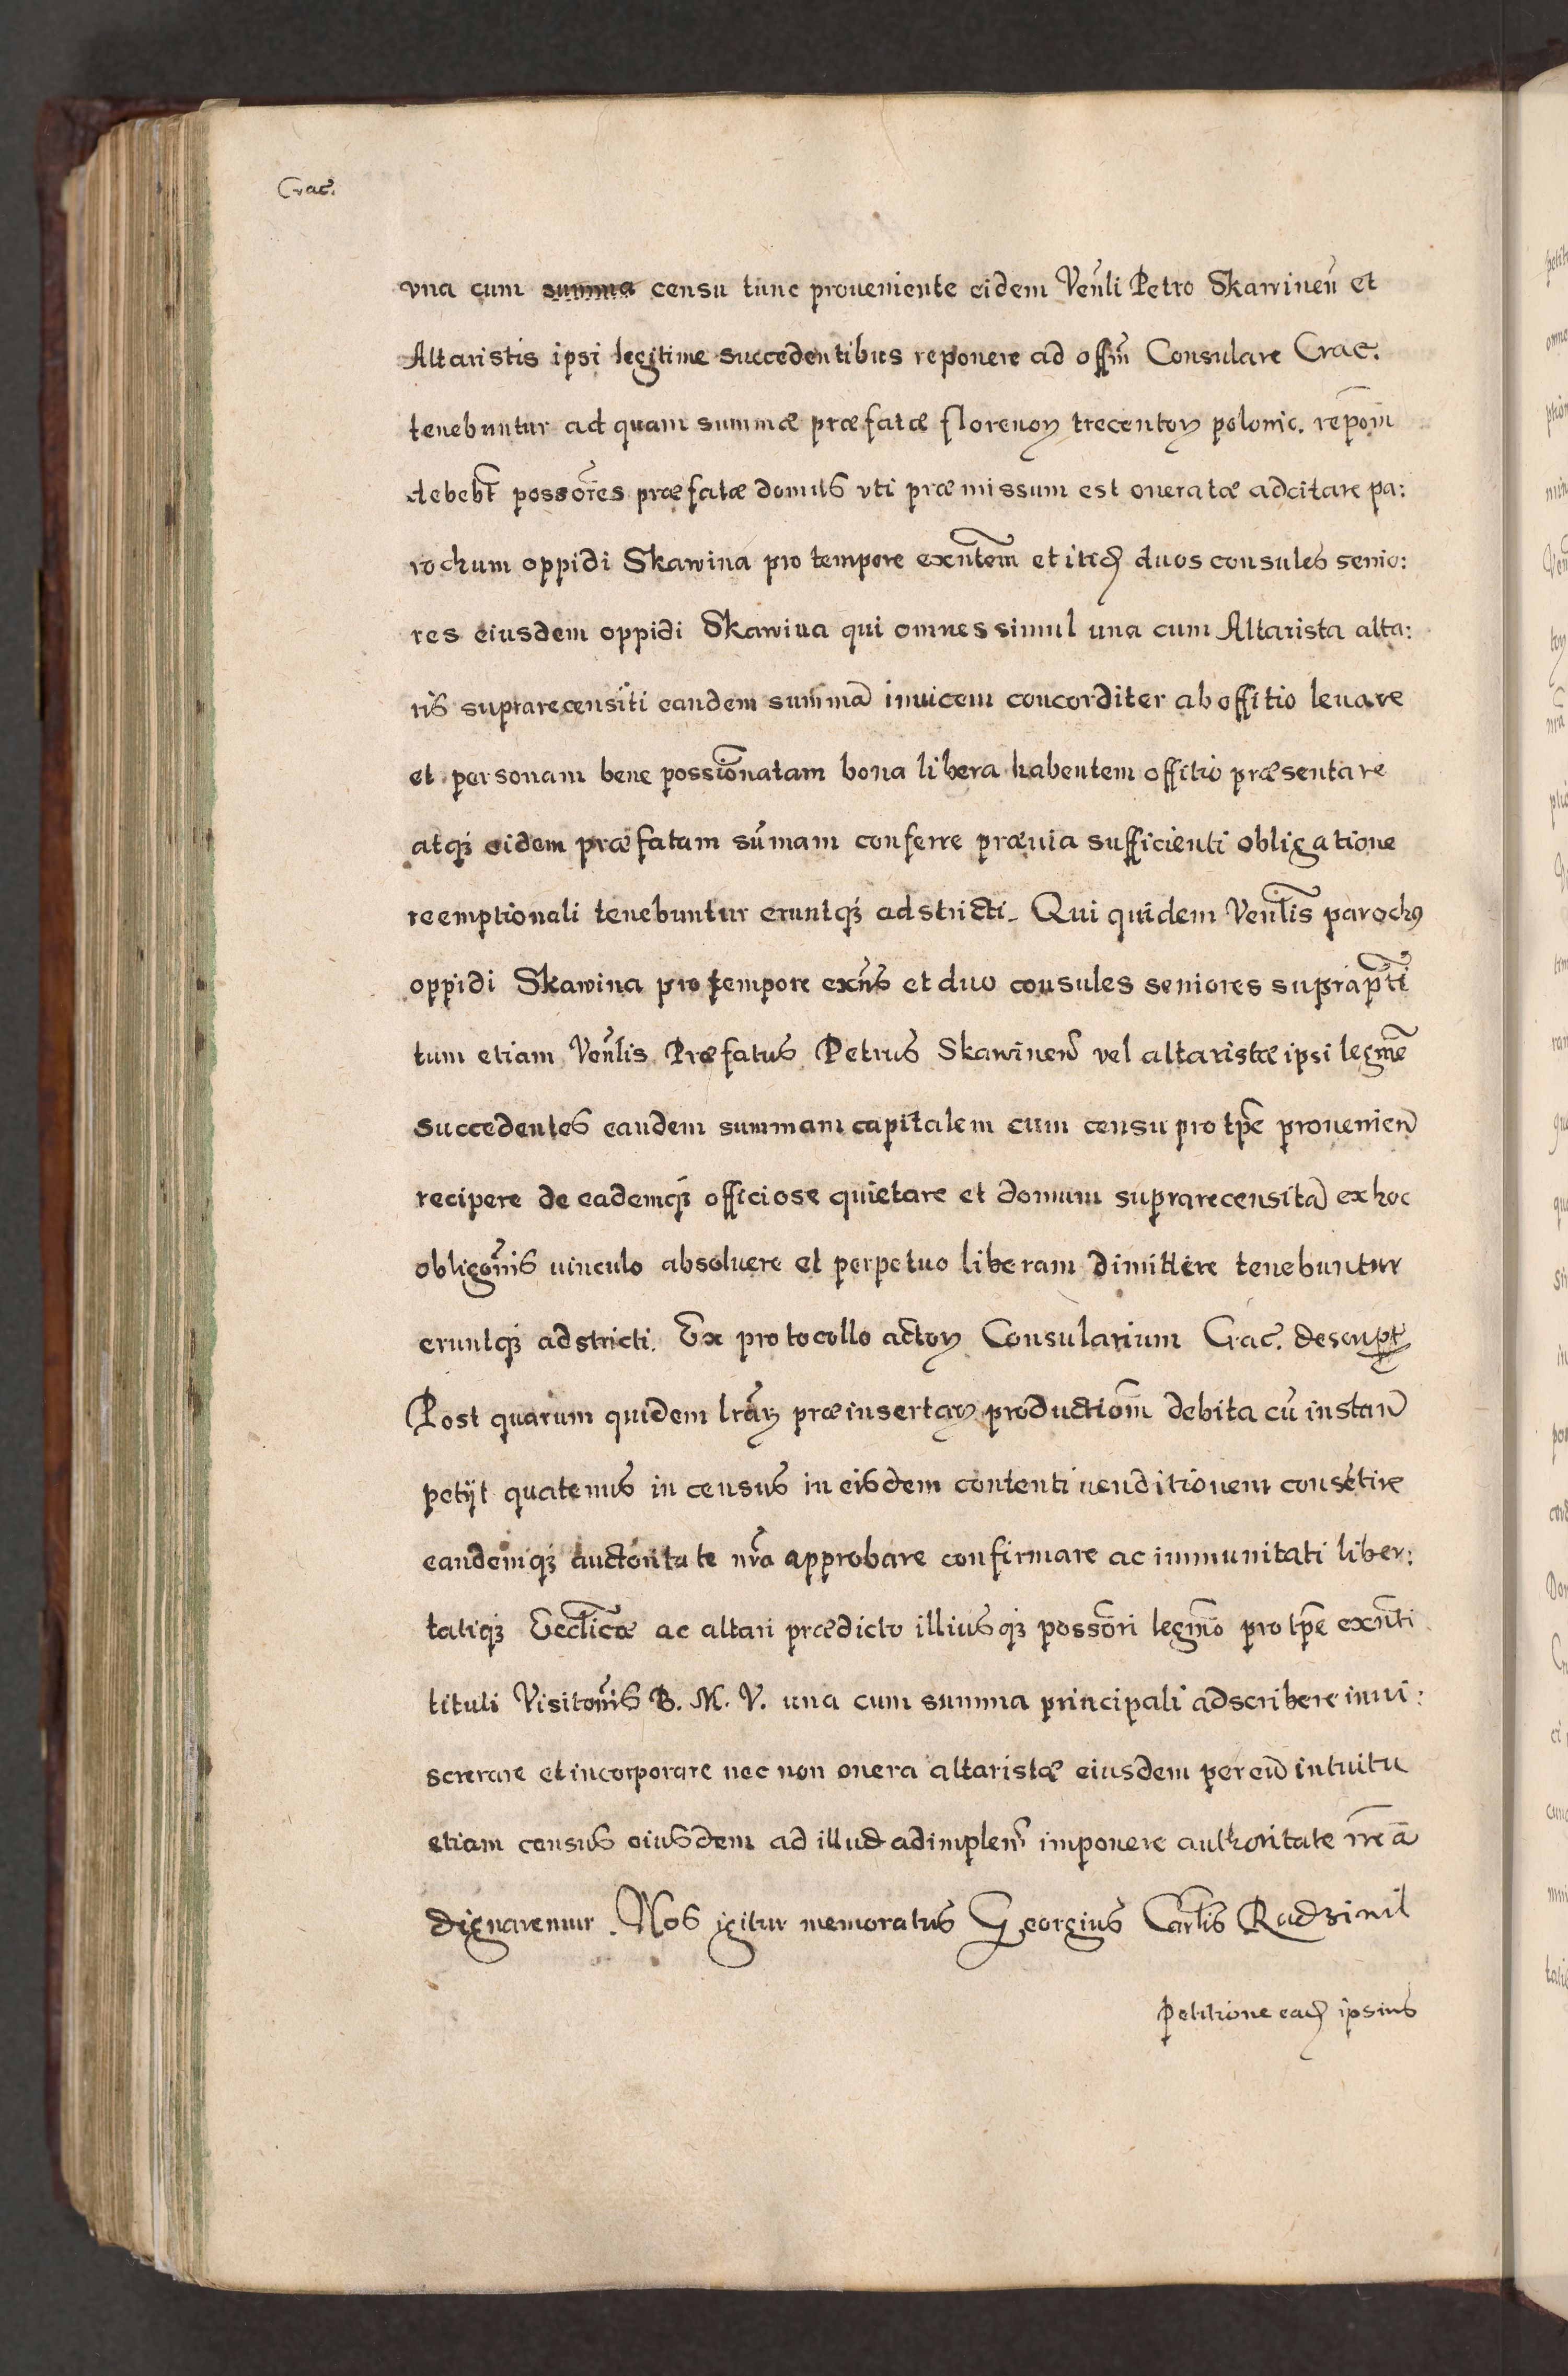 Crac.
vna cum summa censu tunc proueniente eidem Venli Petro Skawinen̄ et
Altaristis ipsi legitime succedentibus reponere ad offm̄ Consulare Crac.
tenebuntur ad quam summæ præfatæ florenoꝝ trecentoꝝ polonic. repom̄
debebt̄ possōres præfatæ domus vti præmissum est oneratæ adcitare pa:
rochum oppidi Skawina pro tempore exn̄tem et itid duos consules senio:
res eiusdem oppidi Skawina qui omnes simul una cum Altarista alta:
ris suprarecensiti eandem summā inuicem concorditer ab offitio leuare
et personam bene possionatam bona libera habentem offitio præsentare
atqꝫ eidem præfatam sūmam conferre præuia sufficienti obligatione
reemptionali tenebuntur eruntqꝫ adstricti. Qui quidem Venlis parochꝰ
oppidi Skawina pro tempore exn̄s et duo consules seniores suprapt̄i
tum etiam Venlis Præfatus Petrus Skawinen̄ vel altaristæ ipsi legm̄e
succedentes eandem summam capitalem cum censu pro tp̄e prouenien̄
recipere de eademqꝫ officiose quietare et domum suprarecensitā ex hoc
obligōnis uinculo absoluere et perpetuo liberam dimittere tenebuntur
eruntqꝫ adstricti. Ex protocollo actoꝝ Consularium Crac. descript
Post quarum quidem lr̄aꝝ præinsertaꝝ productiom̄ debita cū instan̄
petijt quatenus in census in eisdem contenti uenditionem consētire
eandemqꝫ auctoritate nr̄a approbare confirmare ac immunitati liber:
tatiqꝫ Eccl̄icæ ac altari prædicto illiusqꝫ possōri legmō pro tp̄e exn̄ti
tituli Visitōnis B. M. V. una cum summa principali adscribere inui:
scerare et incorporare nec non onera altaristæ eiusdem per eū intuitu
etiam census eiusdem ad illud adimplen̄ imponere authoritate nr̄ā
dignaremur. Nos igitur memoratus Georgius Carlis Radziuil
Petitione ead ipsius